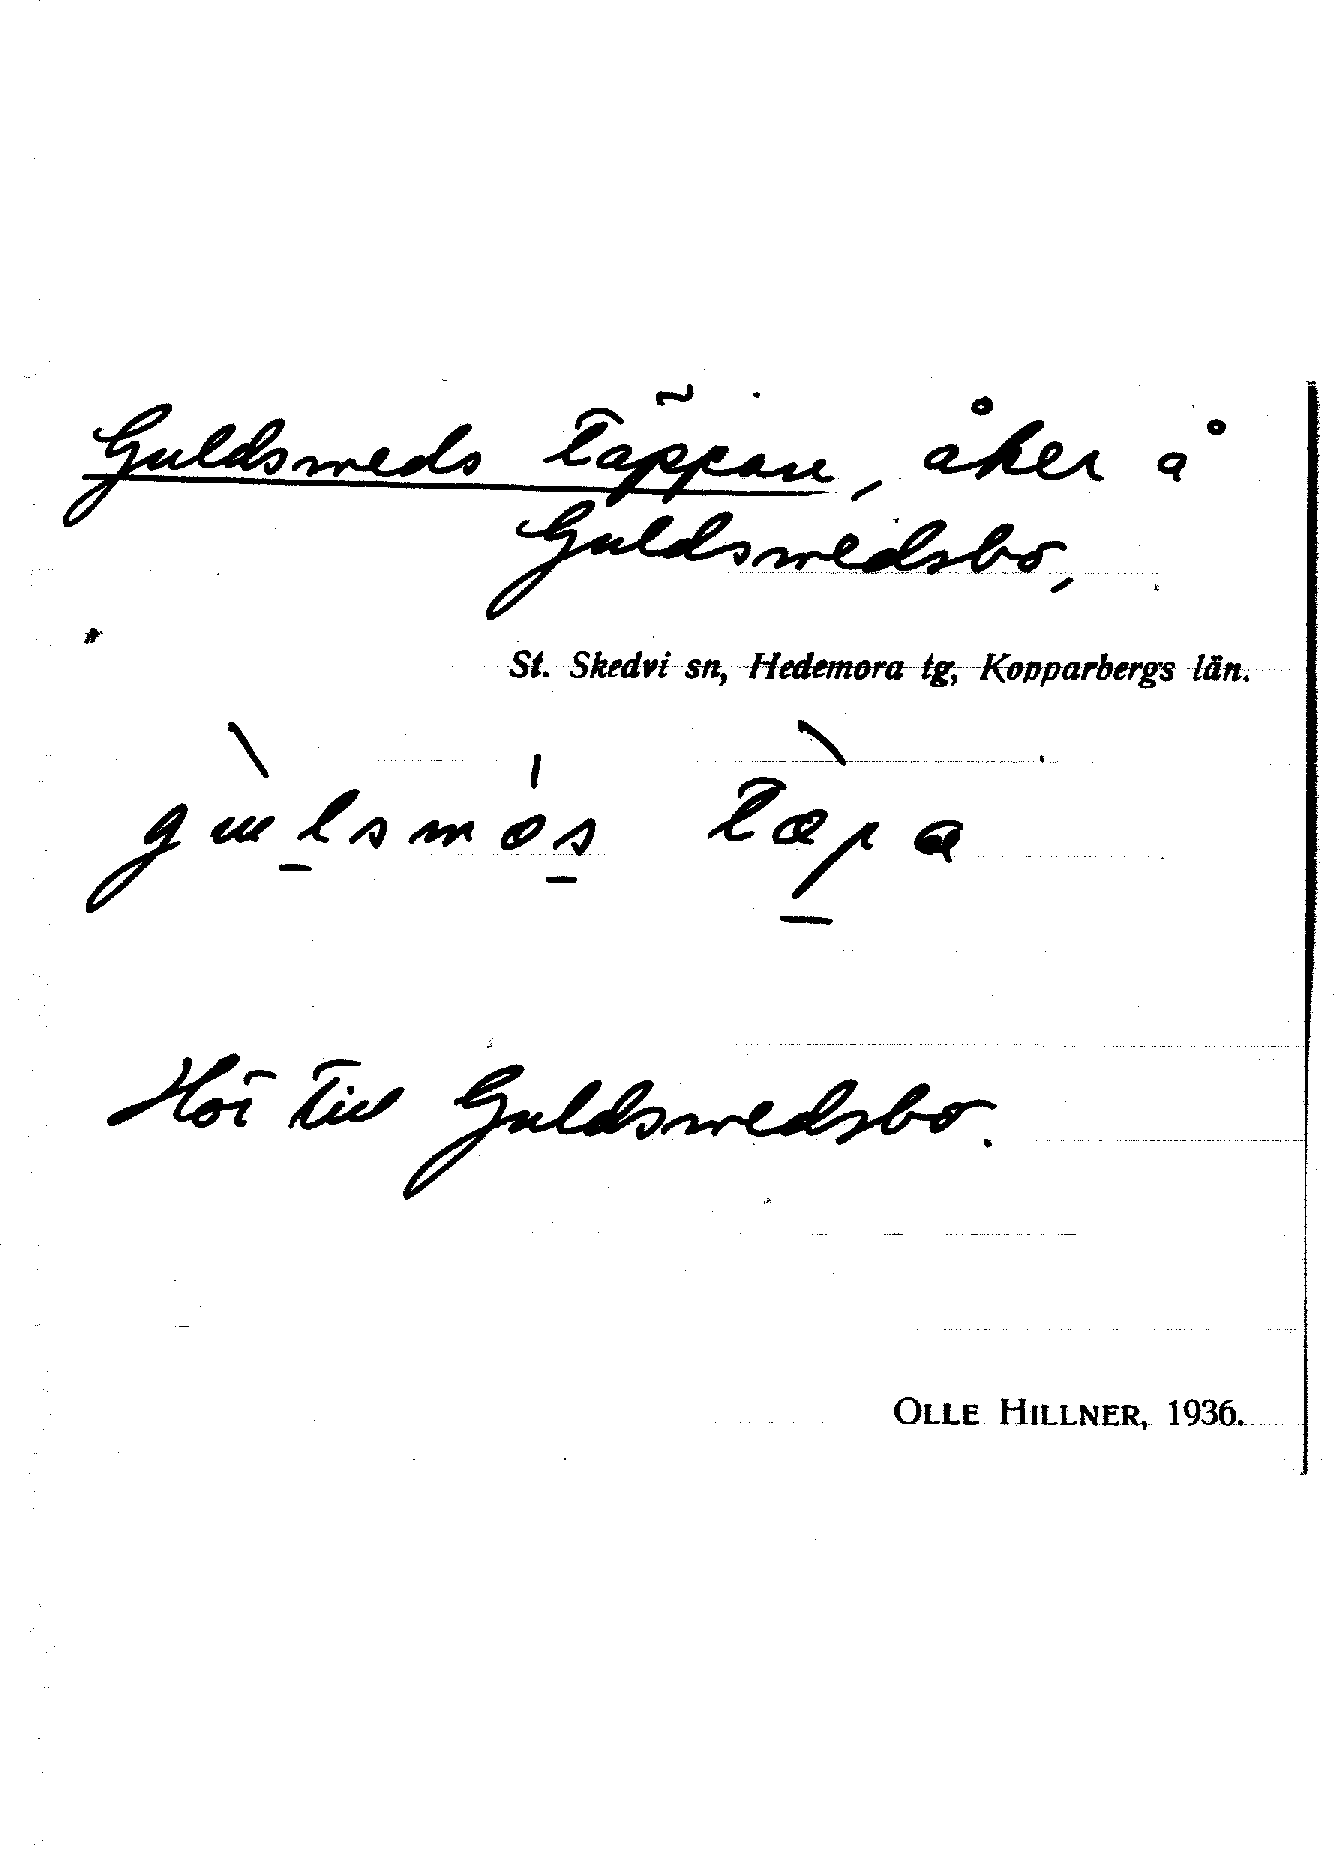 Guldsmeds täppan, åker å
Guldsmedsbo,
St. Skedvi sn, Hedemora tg, Kopparbergs län.
Hör till Guldsmedsbo.
OLLE HILLNER, 1936.